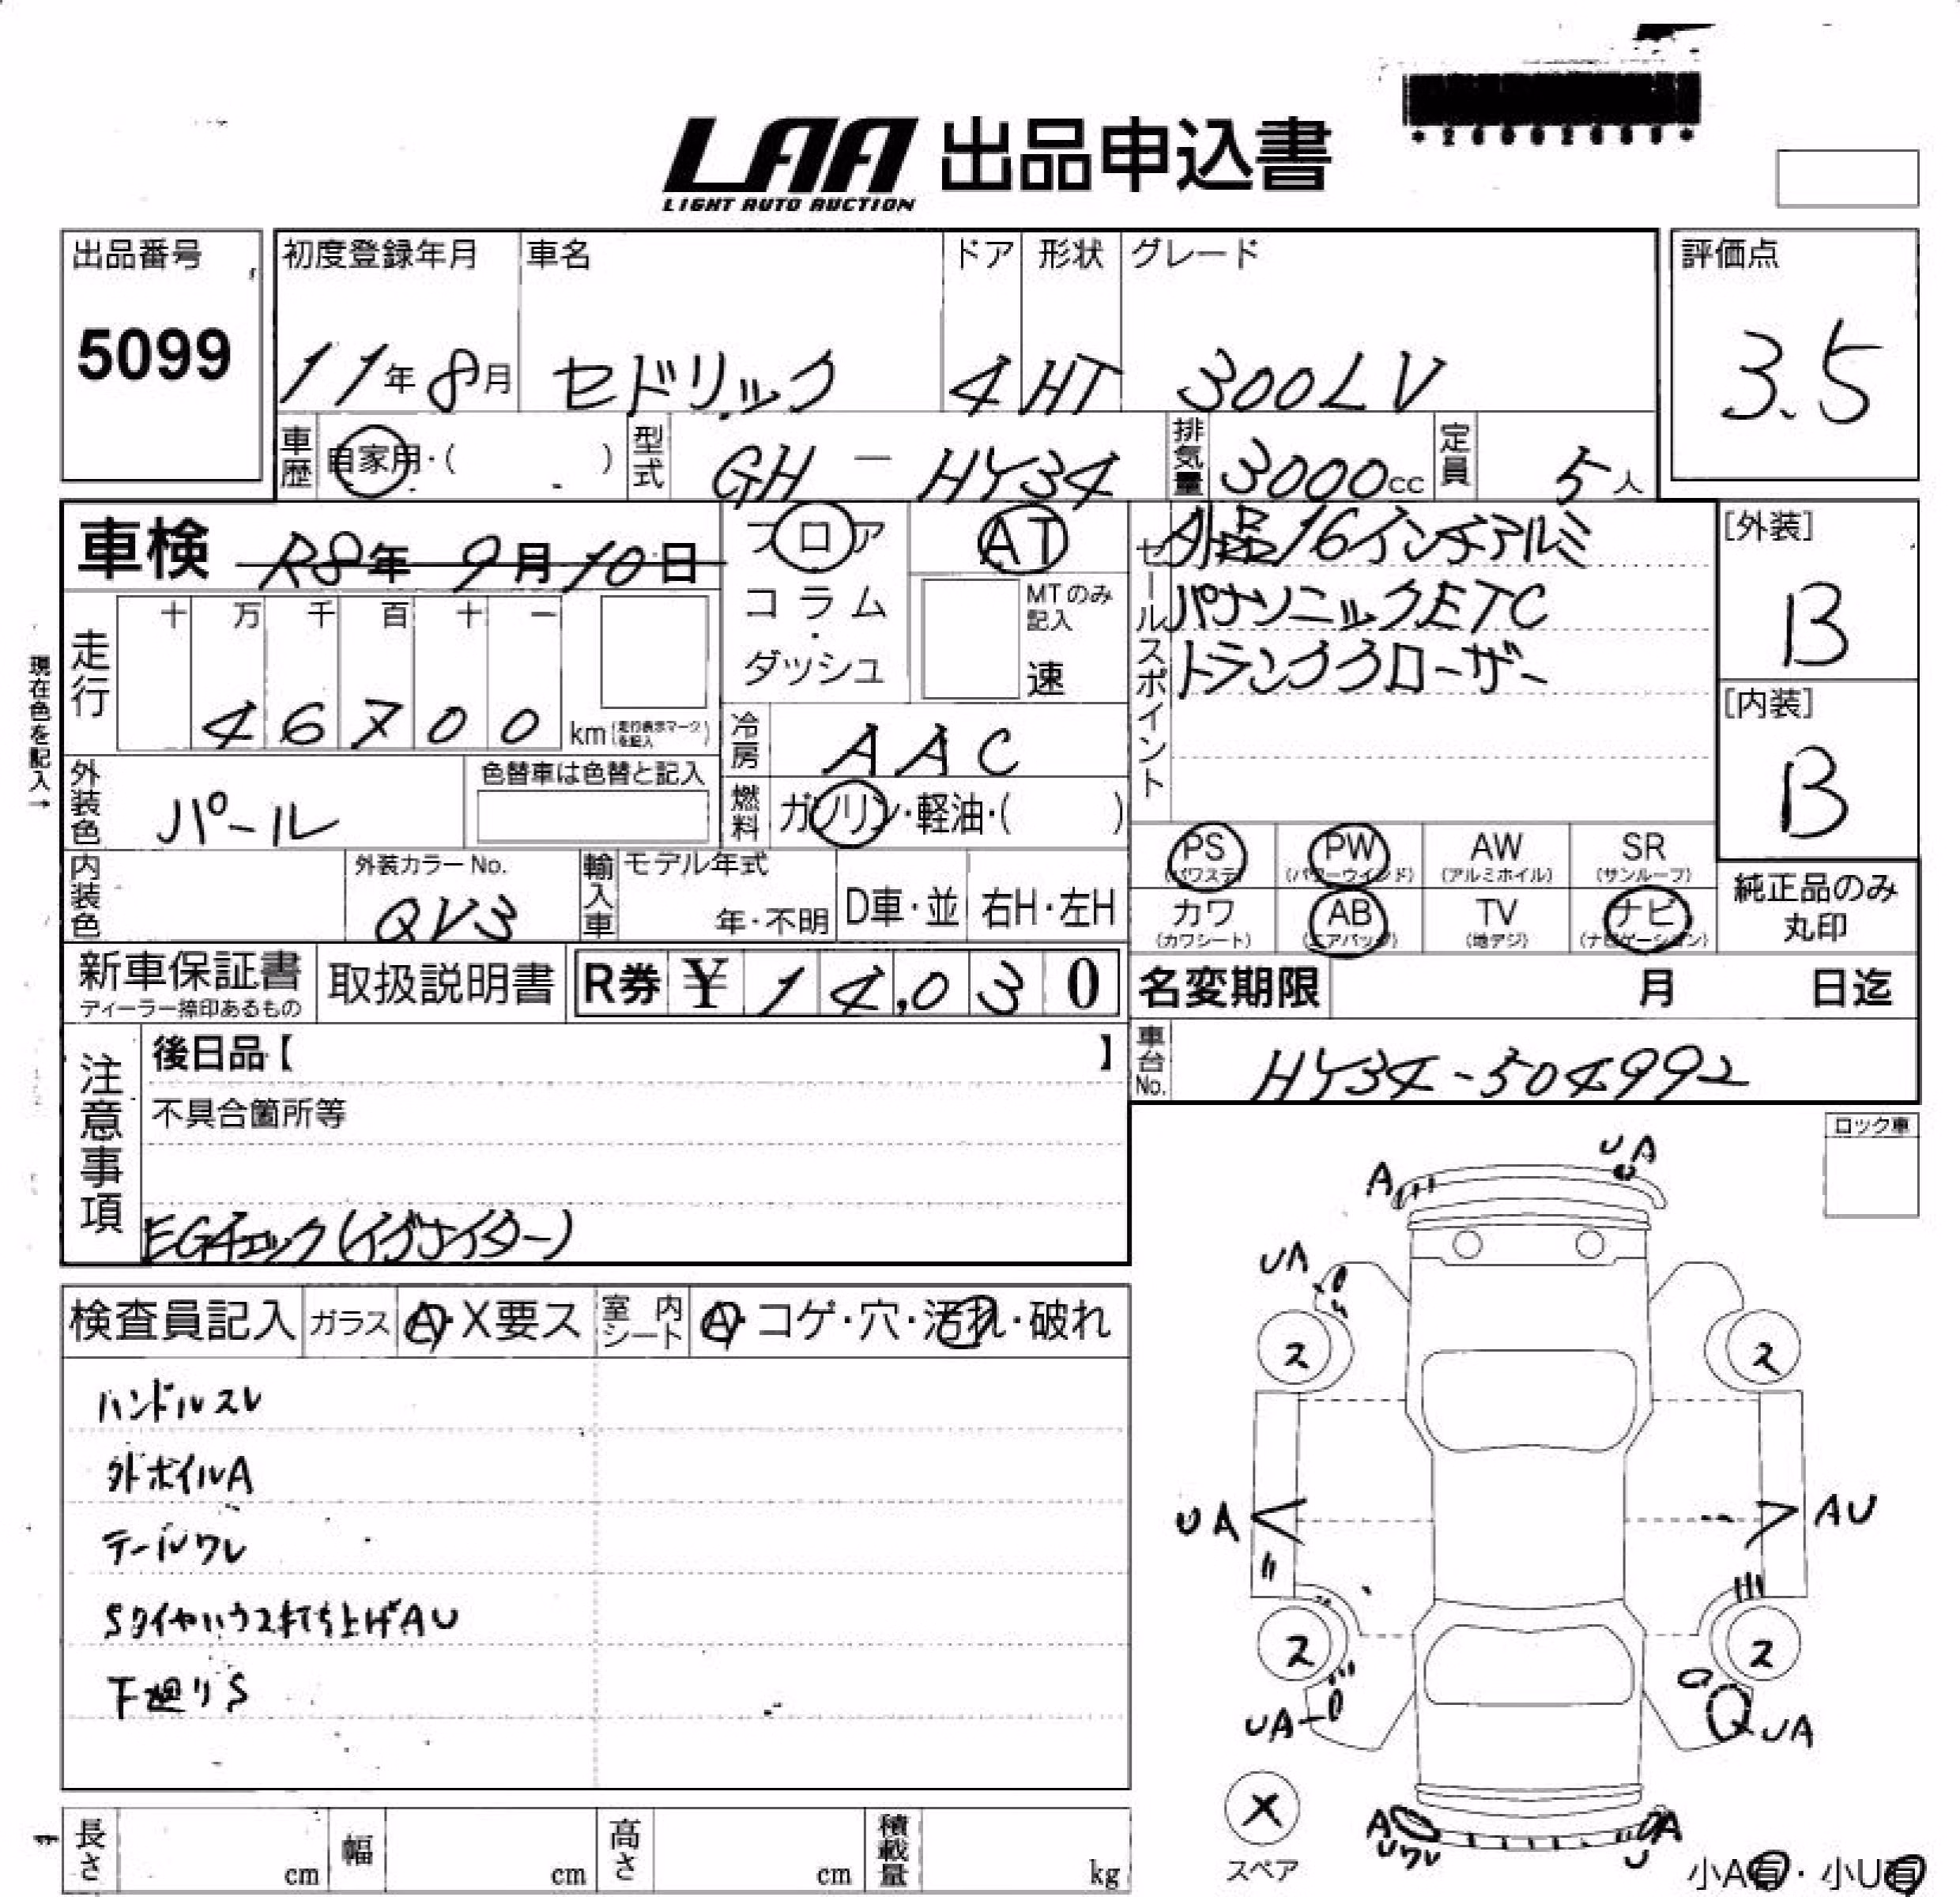 LAA 出品申込書
LIGHT AUTO AUCTION
出品番号
5099
初度登録年月
11年8月
車名
セドリック
ドア
4
形状
HT
グレード
300LV
評価点
3.5
車歴
自家用・( )
型式
GH-HY34
排気量
3000cc
定員
5人
車検 R8年 9月10日
フロア
コラム
・
ダッシュ
AT
MTのみ記入
速
セールスポイント
社外品16インチアルミ
パナソニックETC
トランククローザー
[外装]
B
[内装]
B
現在色を記入→
走行
十 万 千 百 十 一
46700
km(走行表示マークを記入)
冷房
AAC
燃料
ガソリン・軽油・( )
外装色
パール
色替車は色替と記入
内装色
外装カラーNo.
QV3
輸入車
モデル年式
年・不明
D車・並
右H・左H
PS
(パワステ)
PW
(パワーウインド)
AW
(アルミホイル)
SR
(サンルーフ)
カワ
(カワシート)
AB
(エアバッグ)
TV
(地デジ)
ナビ
(ナビゲーション)
純正品のみ
丸印
新車保証書
ディーラー捺印あるもの
取扱説明書
R券 ¥ 14,030
名変期限 月 日迄
車台No.
HY34-504992
注意事項
後日品【 】
不具合箇所等
EGチェック(イグナイター)
ロック車
検査員記入
ガラス
A・X要ス
室内シート
A・コゲ・穴・汚れ・破れ
ハンドルスレ
外ホイルA
テールワレ
Sタイヤハウス打ち上げAU
下廻りS
A
UA
UA
ス
ス
UA
AU
ス
ス
UA
UA
X
スペア
A
Uワレ
A
U
小A有・小U有
長さ
cm
幅
cm
高さ
cm
積載量
kg